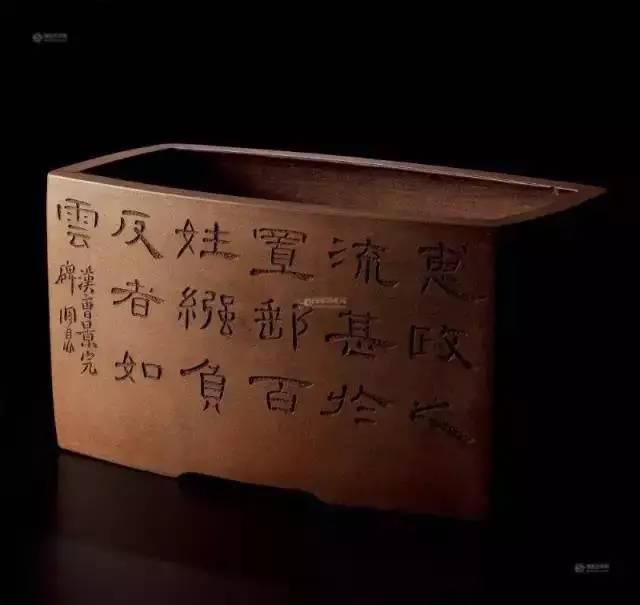 惠政之
流甚於
置郵百
姓繈負
反者如
雲
漢曹景完
碑